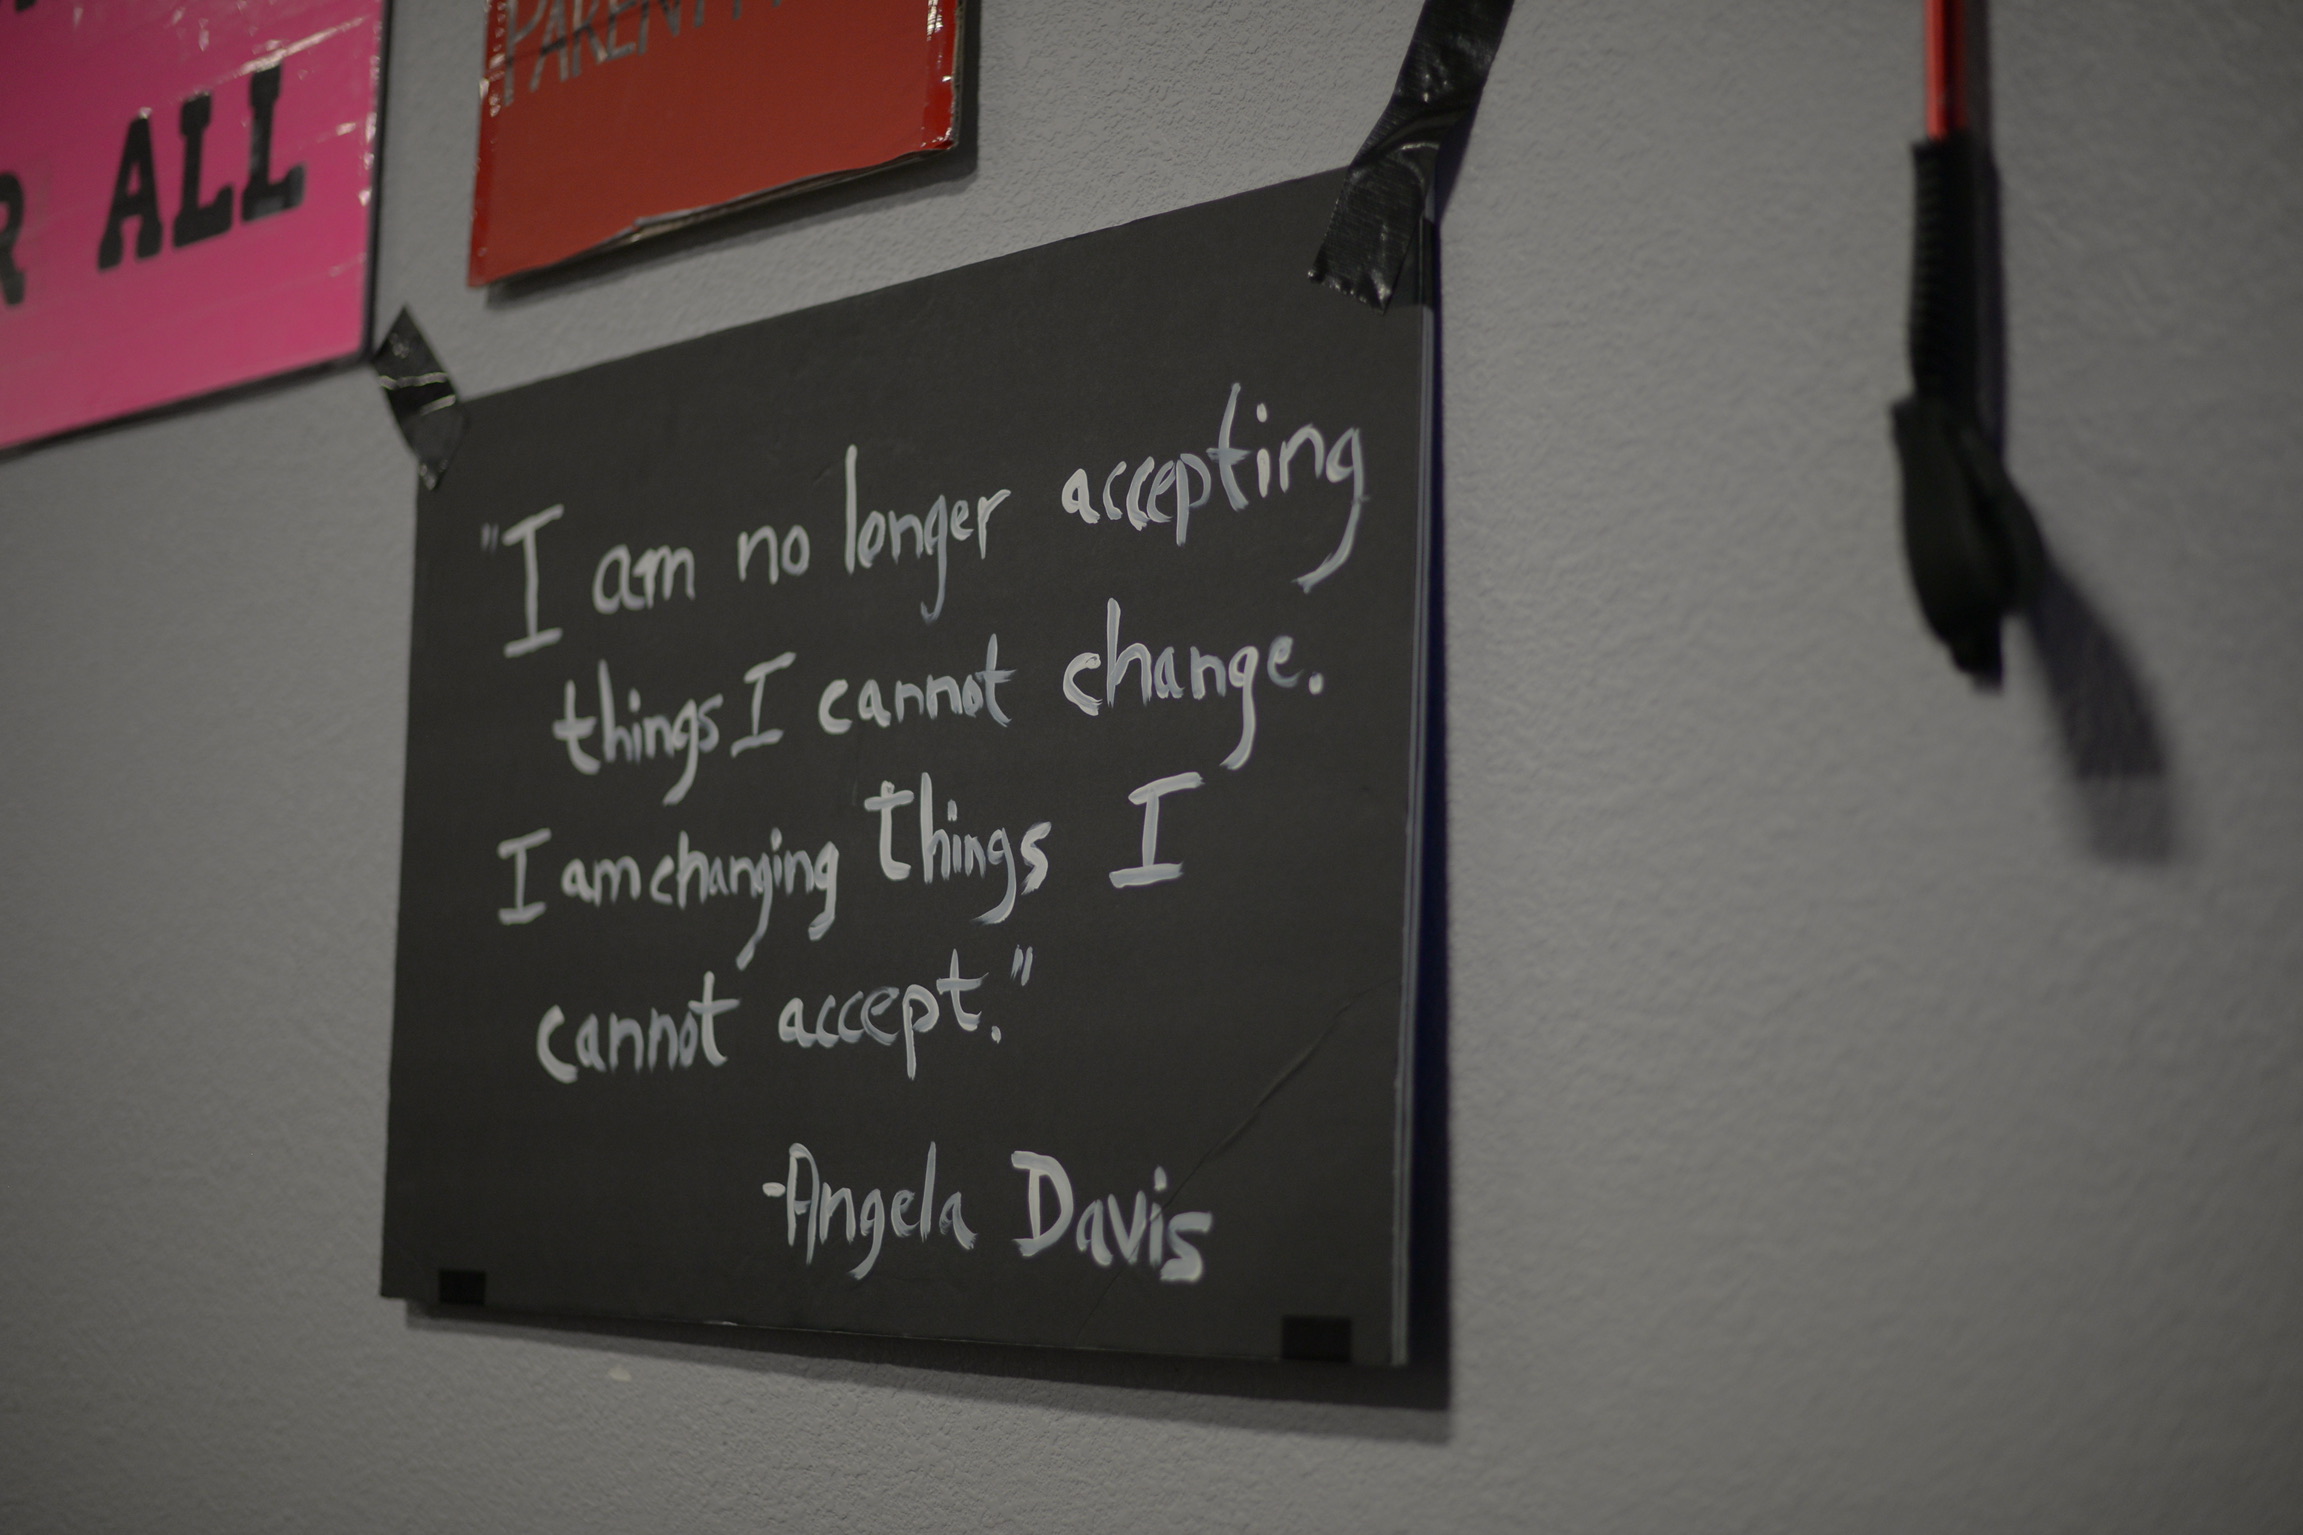 ALL
"I am no longer accepting
things I cannot change.
I am changing things I
cannot accept."
-Angela Davis